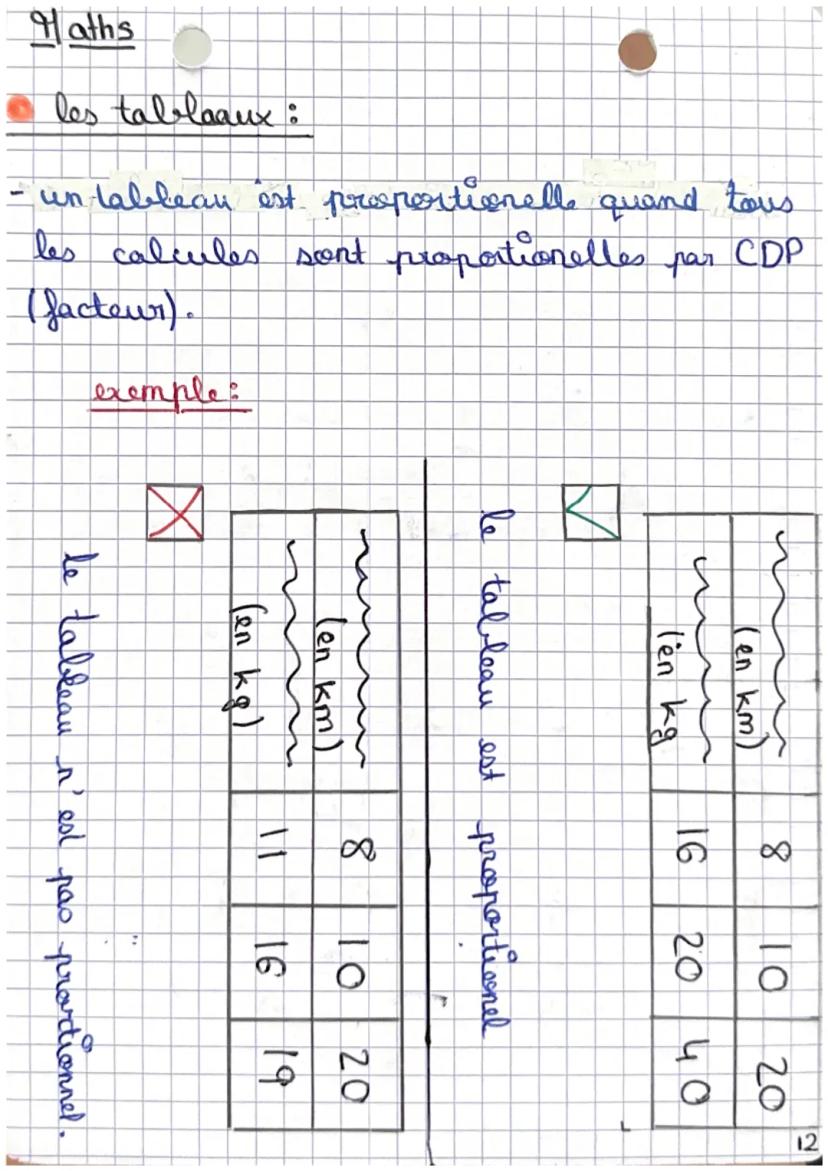 Maths
les tableaux :
- un tableau est proportionelle quand tous
les calcules sont proportionelles par CDP
(facteur).
exemple :
(en km) 8 10 20
(en kg 16 20 40
le tableau est proportionel
(en km) 8 10 20
(en kg) 11 16 19
le tableau n'est pas prortionnel.
12